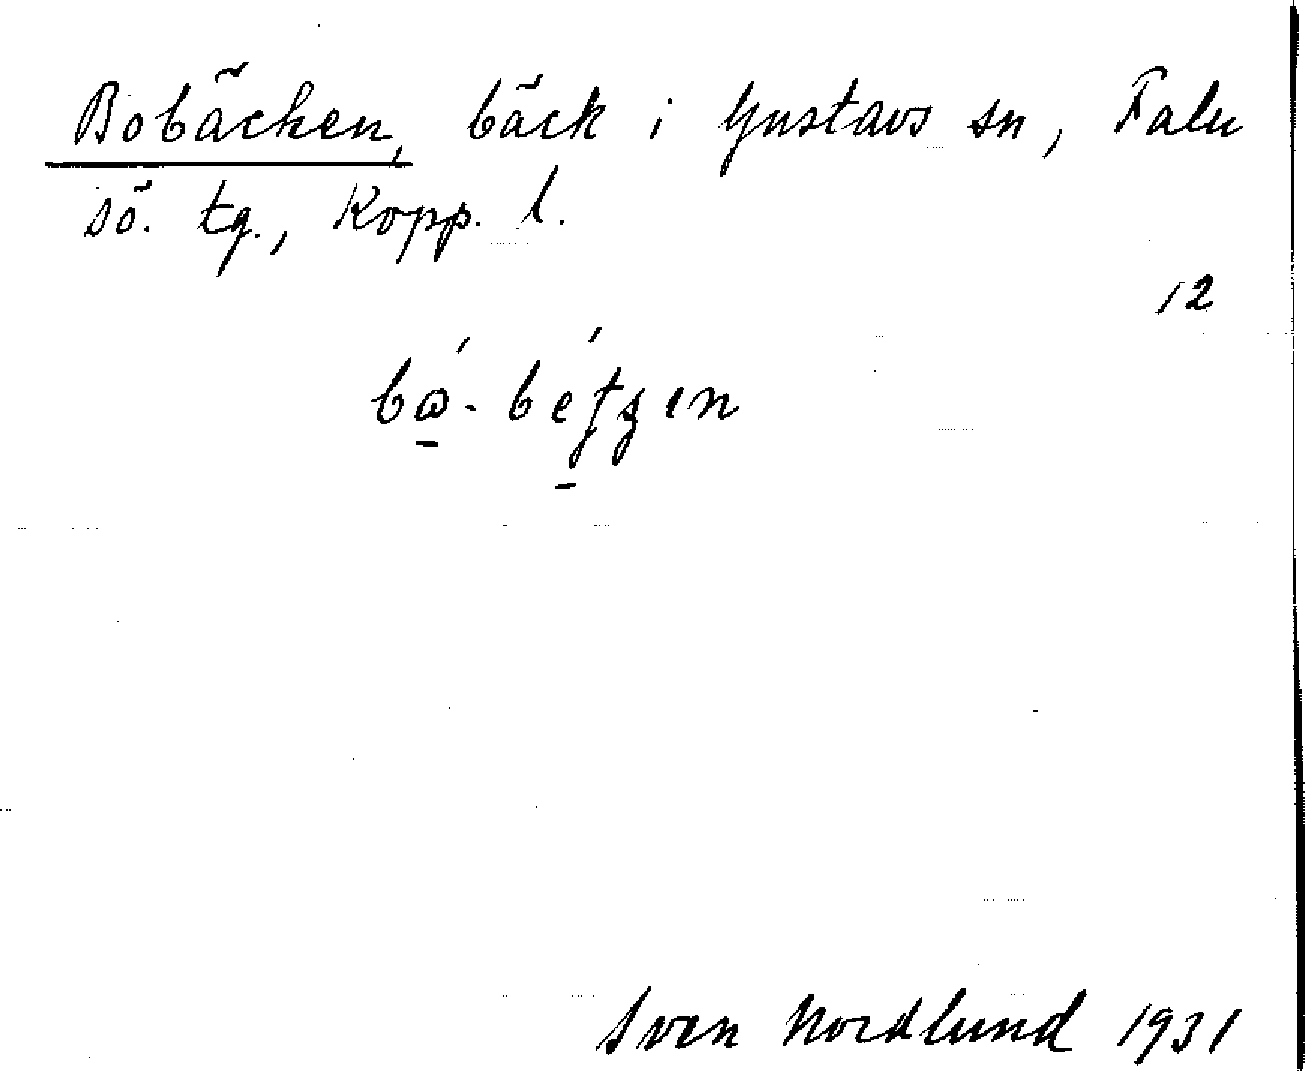 Bobäcken, bäck i Gustavs sn, Falu
sö. tg., Kopp. l.
12
Sven Nordlund 1931